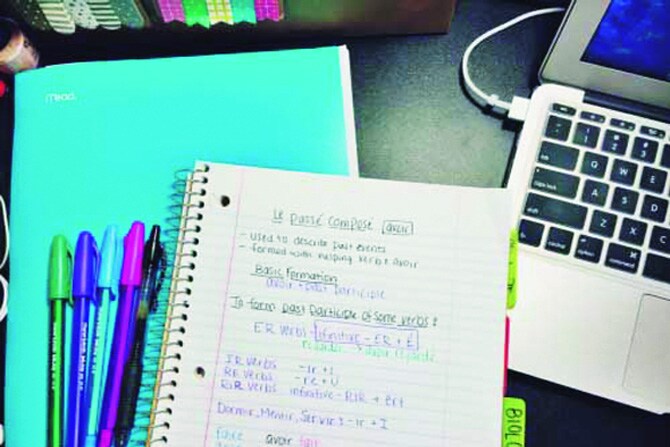 mead
Le passé composé avoir
- used to describe past events
- formed with helping verb avoir
Basic Formation
avoir + past participle
To form past participle of some verbs:
ER verbs - infinitive - ER + É
regarder → avoir regardé
IR verbs -ir + i
RE verbs -re + U
infinitive - RIR + ert
Dormir, Mentir, Servir: -ir + I
faire avoir fait
BIOLO
caps lock
Q W E
A S D
Z X